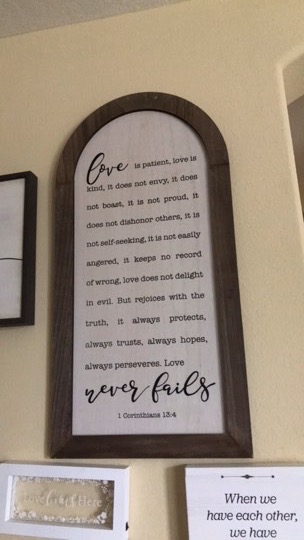 love is patient, love is
kind, it does not envy, it does
not boast, it is not proud, it
does not dishonor others, it is
not self-seeking, it is not easily
angered, it keeps no record
of wrong, love does not delight
in evil. But rejoices with the
truth, it always protects,
always trusts, always hopes,
always perseveres. Love
never fails
1 Corinthians 13:4
Love Here
When we
have each other,
we have